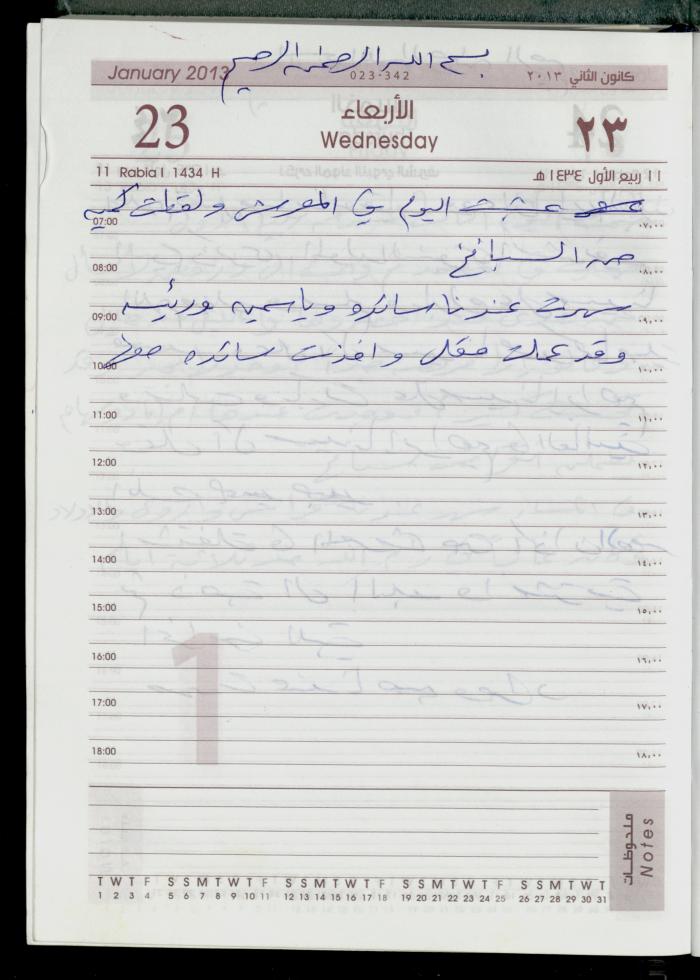 بسم الله الرحمن الرحيم
January 2013 023-342 كانون الثاني ٢٠١٣
23 الأربعاء ٢٣
Wednesday
11 Rabia I 1434 H ١١ ربيع الأول ١٤٣٤ هـ
عشبت اليوم في المفرش ولقطت كمية
07:00 ٠٧,٠٠
من السبانخ
08:00 ٠٨,٠٠
سهرت عندنا سائده وياسمين
09:00 ٠٩,٠٠
وقد عملت واخذت سائده
10:00 ١٠,٠٠
11:00 ١١,٠٠
12:00 ١٢,٠٠
13:00 ١٣,٠٠
14:00 ١٤,٠٠
15:00 ١٥,٠٠
16:00 ١٦,٠٠
17:00 ١٧,٠٠
18:00 ١٨,٠٠
1
ملحوظات
Notes
T W T F S S M T W T F S S M T W T F S S M T W T F S S M T W T
1 2 3 4 5 6 7 8 9 10 11 12 13 14 15 16 17 18 19 20 21 22 23 24 25 26 27 28 29 30 31